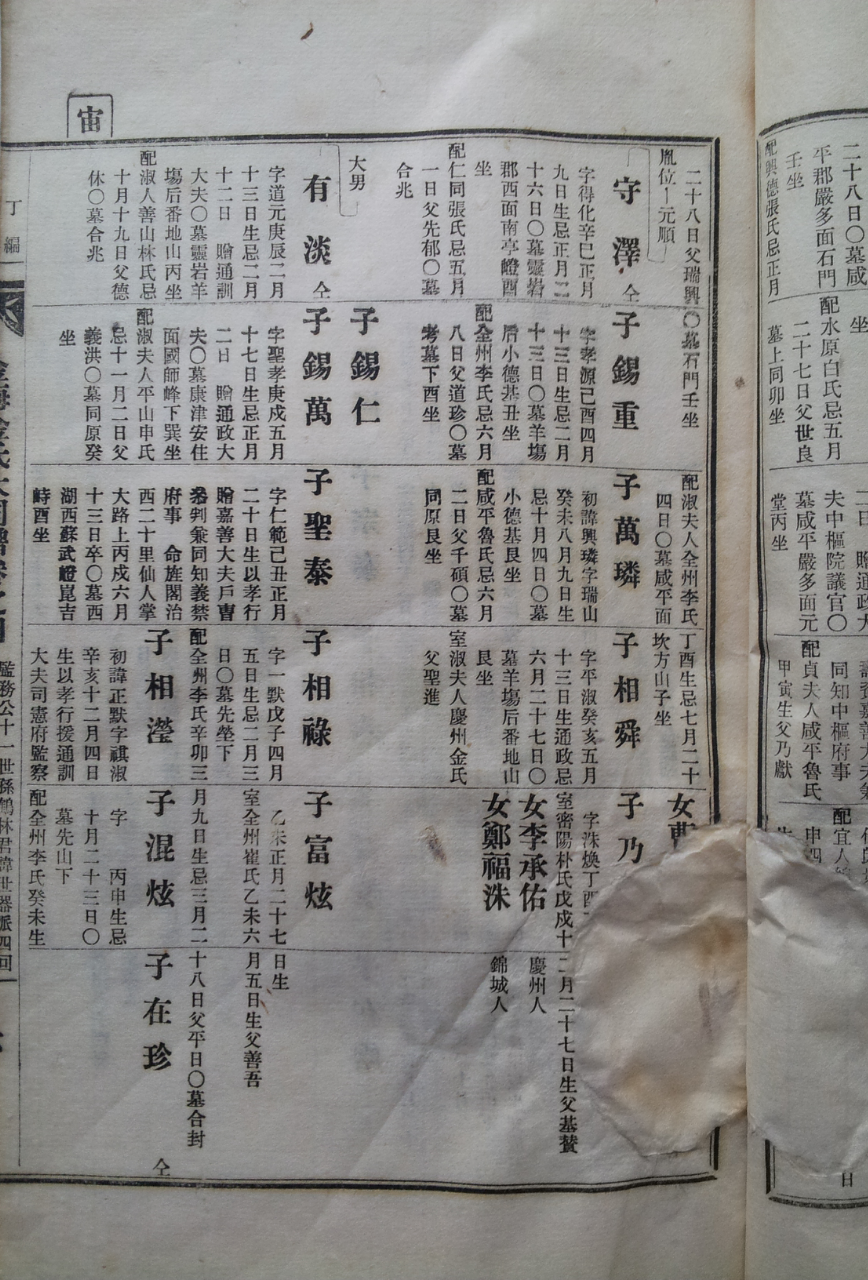 二十八日〇墓咸
平郡嚴多面石門
壬坐
配興德張氏忌正月
坐
配水原白氏忌五月
二十七日父世良
墓上同卯坐
二日 贈通政大
夫中樞院議官〇
墓咸平嚴多面元
堂丙坐
同知中樞府事
配貞夫人咸平魯氏
甲寅生父乃獻
配宜人
日
宙
二十八日父瑞興
胤位 元順
守澤 仝
字得化辛巳正月
九日生忌正月二
十六日〇墓靈岩
郡西面南亭嶝酉
坐
配仁同張氏忌五月
一日父先郁〇墓
合兆
大男
有淡 仝
字道元庚辰二月
十三日生忌二月
十二日 贈通訓
大夫〇墓靈岩羊
塲后番地山丙坐
配淑人善山林氏忌
十月十九日父德
休〇墓合兆
〇墓石門壬坐
子錫重
字孝源己酉四月
十三日生忌二月
十三日〇墓羊塲
后小德基丑坐
配全州李氏忌六月
八日父道珍〇墓
考墓下酉坐
子錫仁
子錫萬
字聖孝庚戌五月
十七日生忌正月
二日 贈通政大
夫〇墓康津安住
面國師峰下巽坐
配淑夫人平山申氏
忌十一月二日父
義洪〇墓同原癸
坐
配淑夫人全州李氏
四日〇墓咸平面
子萬璘
初諱興璘字瑞山
癸未八月九日生
忌十月四日〇墓
小德基艮坐
配咸平魯氏忌六月
二日父千碩〇墓
同原艮坐
子聖泰
字仁範己丑正月
二十日生以孝行
贈嘉善大夫戶曹
參判兼同知義禁
府事 命旌閣治
西二十里仙人掌
大路上丙戌六月
十三日卒〇墓西
湖西蘇武嶝崑吉
峙酉坐
丁酉生忌七月二十
坎方山子坐
子相舜
字平淑癸亥五月
十三日生通政忌
六月二十七日〇
墓羊塲后番地山
艮坐
室淑夫人慶州金氏
父聖進
子相祿
字一默戊子四月
五日生忌二月三
日〇墓先塋下
配全州李氏辛卯三
子相瀅
初諱正默字祺淑
辛亥十二月四日
生以孝行援通訓
大夫司憲府監察
配全州李氏癸未生
女曹
子乃
字洙煥丁酉
室密陽林氏戊戌十
女李承佑
女鄭福洙
子富炫
乙未正月二十七
室全州崔氏乙未六
月九日生忌三月二
子混炫
字 丙申生忌
十月二十三日〇
墓先山下
二月二十七日生父基贊
慶州人
錦城人
日生
月五日生父善吾
十八日父平日〇墓合封
子在珍
仝
丁編
監務公十一世孫鶴林君諱世器派四回